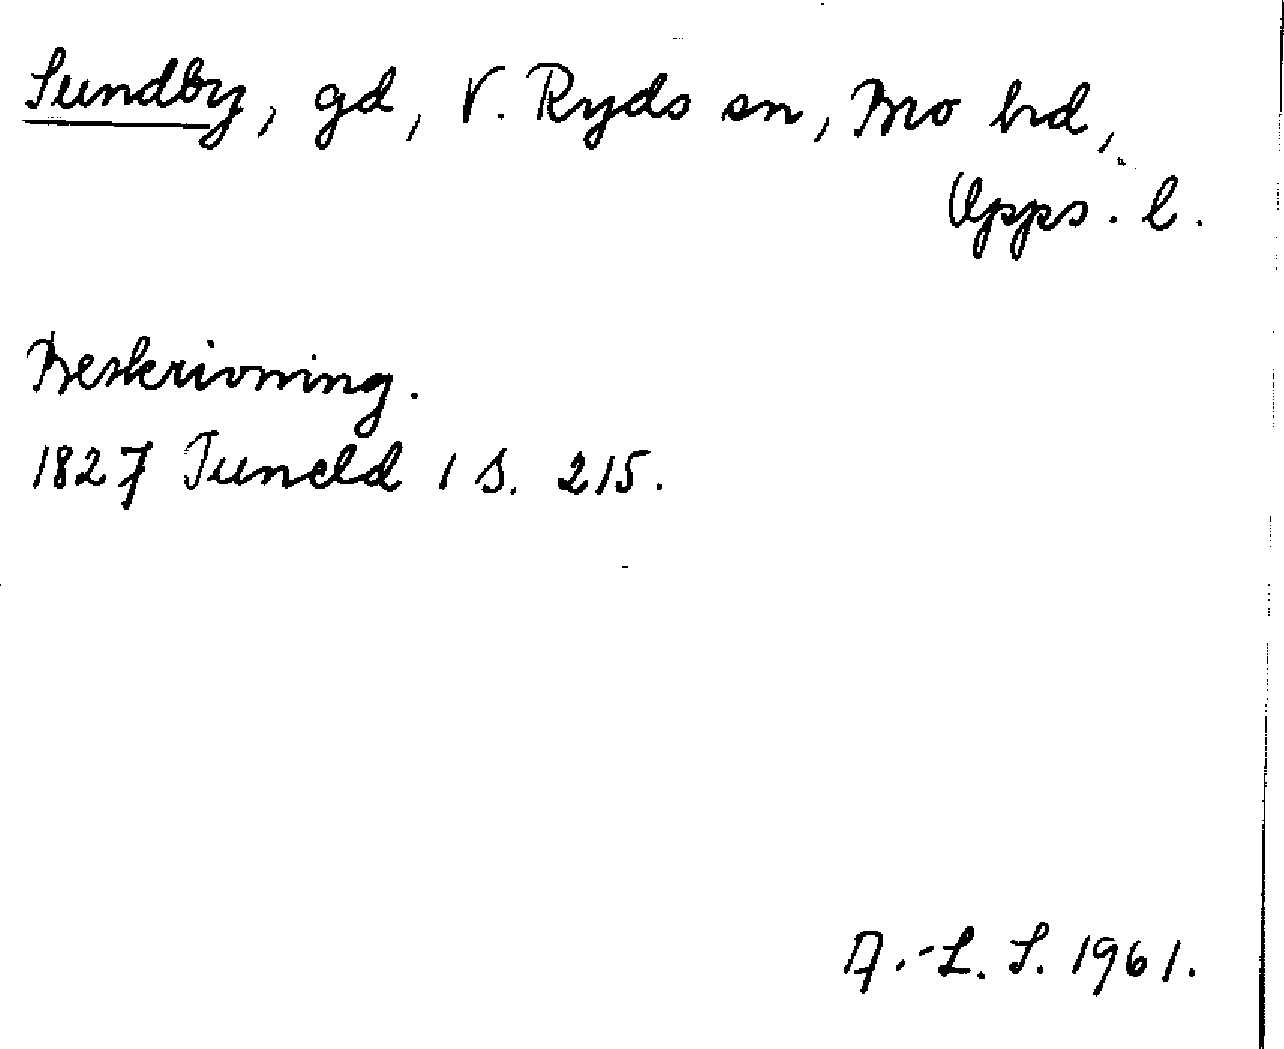 Sundby, gd, V. Ryds sn, Bro hd,
Upps. l.
Beskrivning.
1827 Tuneld 1 S. 215.
A.-L. S. 1961.